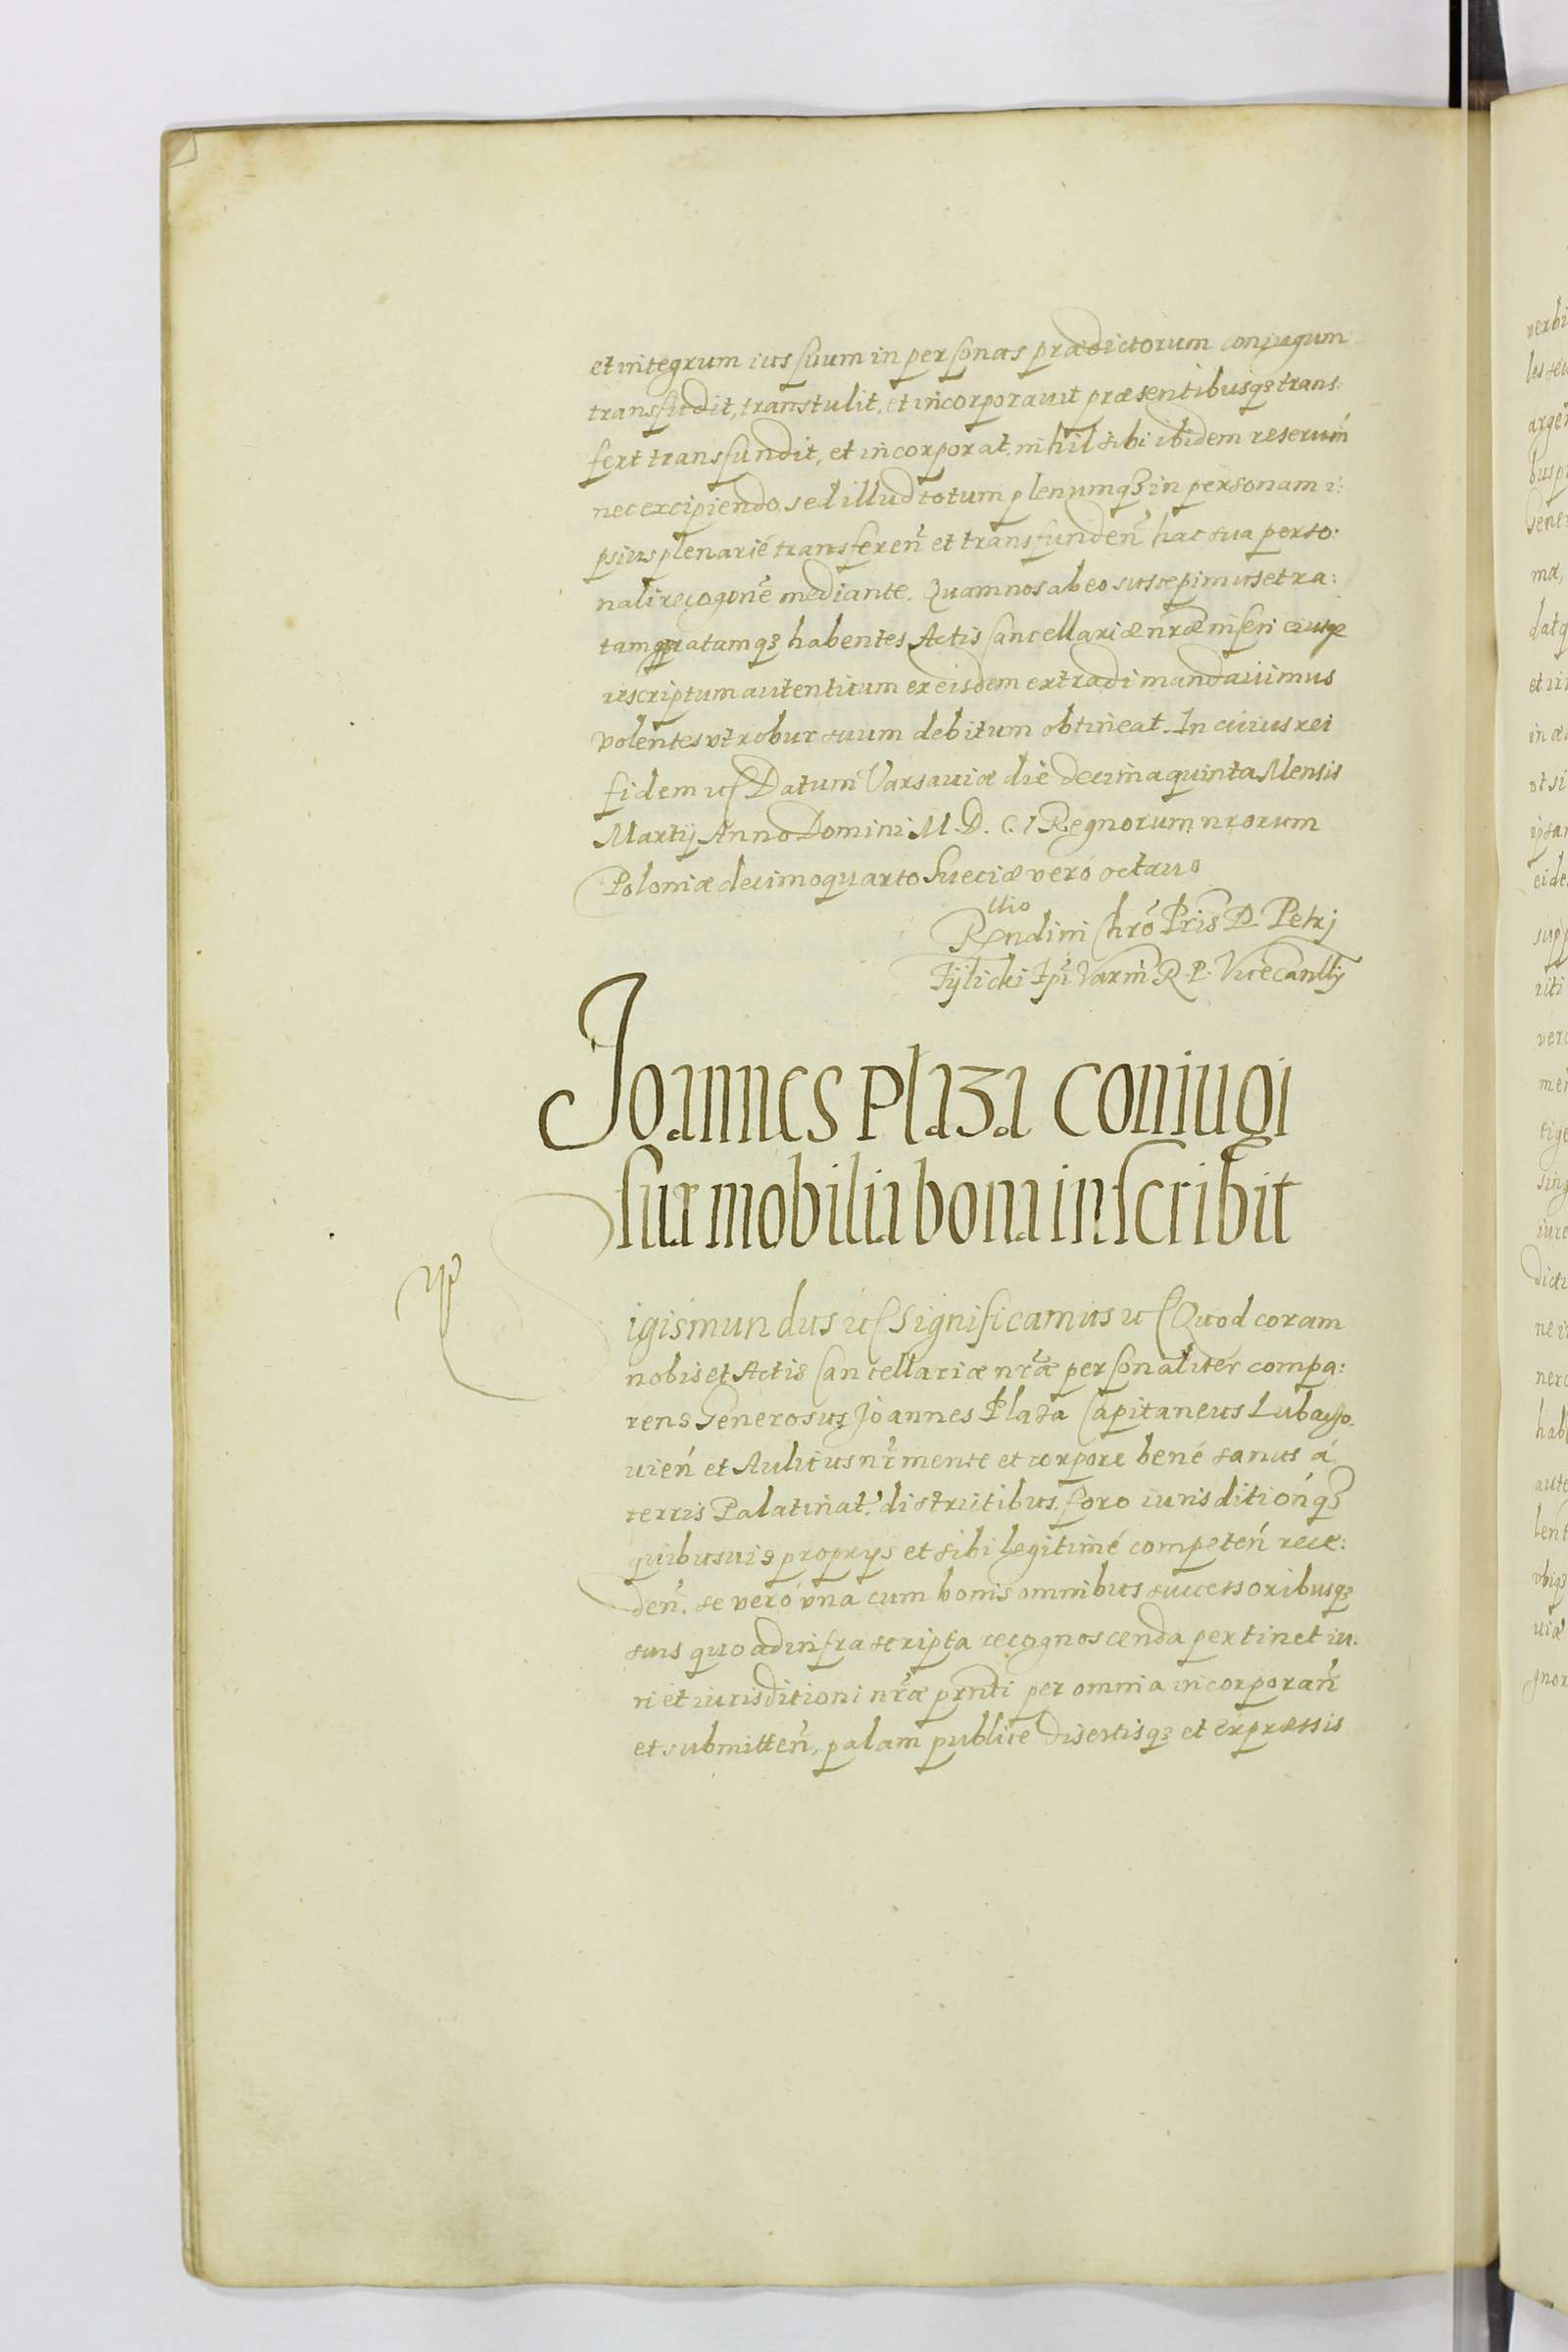 et integrum ius suum in personas prædictorum coniugum
transfudit, transtulit, et incorporauit præsentibusq3 trans:
fert transfundit, et incorporat, nihil sibi ibidem reseruiń
nec excipiendo, sed illud totum plenumq3 in personam i:
psius plenarié transfereñ et transfundeñ hac sua perso:
nali recogonẽ mediante. Quam nos ab eo suscepimus et ra:
tam gratamq3 habentes Actis Cancellariæ nræ inseri eiusq3
rescriptum autenticum ex eisdem extradi mandauimus
volentes vt robur suum debitum obtineat. In cuius rei
fidem uſ Datum Varsauiæ die decima quinta Mensis
Martij Anno Domini M. D. C. I Regnorum nrorum
Poloniæ decimoquarto Sueciæ veró octauo
Rllio
Rendini Chró Pris D. Petrj
Tylicki Epi Varm R. P. Vicecanllij
Joannes Plaza coniugi
sua mobilia bona inscribit
igismundus uſ Significamus uſ Quod coram
nobis et Actis Cancellariæ nræ personaliter compa:
rens Generosus Joannes Plaza Capitaneus Lubaczo
uień et Aulicus nr̃ mente et corpore bené sanus á
terris Palatinat: districtibus. foro iurisditiońq3
quibusuis proprijs et sibi legitimé competeń rece:
deñ. se veró vna cum bonis omnibus successoribusq3
suis quo ad infra scripta recognoscenda pertinet iu:
ri et iurisditioni nræ prnti per omnia incorporañ
et submitteñ, palam publice disertisq3 et expræssis